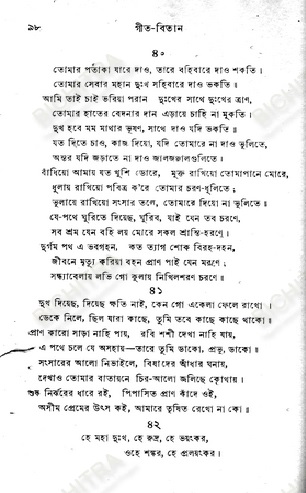 ৯৮ গীত-বিতান
৪০
তোমার পতাকা যারে দাও, তারে বহিবারে দাও শকতি।
তোমার সেবার মহান দুঃখ সহিবারে দাও ভকতি॥
আমি তাই চাই ভরিয়া পরান দুঃখের সাথে দুঃখের ত্রাণ,
তোমার হাতের বেদনার দান এড়ায়ে চাহি না মুকতি।
দুখ হবে মম মাথার ভূষণ, সাথে দাও যদি ভকতি॥
যত দিতে চাও, কাজ দিয়ো, যদি তোমারে না দাও ভুলিতে,
অন্তর যদি জড়াতে না দাও জালজঞ্জালগুলিতে।
বাঁধিয়ো আমায় যত খুশি ডোরে, মুক্ত রাখিয়ো তোমাপানে মোরে,
ধুলায় রাখিয়ো পবিত্র ক'রে তোমার চরণ-ধূলিতে;
ভুলায়ে রাখিয়ো সংসার তলে, তোমারে দিয়ো না ভুলিতে॥
যে-পথে ঘুরিতে দিয়েছ, ঘুরিব, যাই যেন তব চরণে,
সব শ্রম যেন বহি লয় মোরে সকল শ্রান্তি-হরণে।
দুর্গম পথ এ ভবগহন, কত ত্যাগা শোক বিরহ-দহন,
জীবনে মৃত্যু করিয়া বহন প্রাণ পাই যেন মরণে;
সন্ধ্যাবেলায় লভি গো কুলায় নিখিলশরণ চরণে॥
৪১
দুখ দিয়েছ, দিয়েছ ক্ষতি নাই, কেন গো একেলা ফেলে রাখো।
ডেকে নিলে, ছিল যারা কাছে, তুমি তবে কাছে কাছে থাকো॥
প্রাণ কারো সাড়া নাহি পায়, রবি শশী দেখা নাহি যায়,
এ পথে চলে যে অসহায়—তারে তুমি ডাকো, প্রভু, ডাকো॥
সংসারের আলো নিভাইলে, বিষাদের আঁধার ঘনায়,
দেখাও তোমার বাতায়নে চির-আলো জ্বলিছে কোথায়।
শুষ্ক নির্ঝরের ধারে রই, পিপাসিত প্রাণ কাঁদে ওই,
অসীম প্রেমের উৎস কই, আমারে তৃষিত রেখো না কো॥
৪২
হে মহা দুঃখ, হে রুদ্র, হে ভয়ংকর,
ওহে শংকর, হে প্রলয়ংকর।